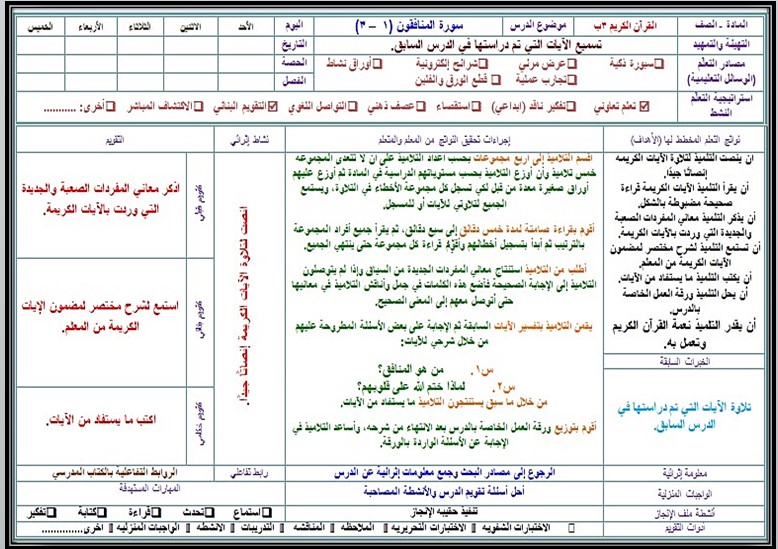 المادة - الصف
القرآن الكريم ٣ب
موضوع الدرس
سورة المنافقون (١ – ٣)
اليوم
الأحد
الاثنين
الثلاثاء
الأربعاء
الخميس
التهيئة والتمهيد
تسميع الآيات التي تم دراستها في الدرس السابق.
التاريخ
مصادر التعلم
(الوسائل التعليمية)
سبورة ذكية
عرض مرئي
شرائح إلكترونية
أوراق نشاط
تجارب عملية
قطع الورق والفلين
الحصة
الفصل
استراتيجية التعلم
النشط
☑ تعلم تعاوني □ تفكير ناقد (ابداعي) □ استقصاء □ عصف ذهني □ التواصل اللغوي ☑ التقويم البنائي □ الاكتشاف المباشر □ أخرى: ...........
نواتج التعلم المخطط لها (الأهداف)
إجراءات تحقيق النواتج من المعلم والمتعلم
نشاط إثرائي
التقويم
أن ينصت التلميذ لتلاوة الآيات الكريمة
إنصاتًا جيدًا.
أن يقرأ التلميذ الآيات الكريمة قراءة
صحيحة مضبوطة بالشكل.
أن يذكر التلميذ معاني المفردات الصعبة
والجديدة التي وردت بالآيات الكريمة.
أن تستمع التلميذ لشرح مختصر لمضمون
الآيات الكريمة من المعلم.
أن يكتب التلميذ ما يستفاد من الآيات.
أن يحل التلميذ ورقة العمل الخاصة
بالدرس.
أن يقدر التلميذ نعمة القرآن الكريم
وتعمل به.
الخبرات السابقة
تلاوة الآيات التي تم دراستها في
الدرس السابق.
اقسم التلاميذ إلى أربع مجموعات بحسب اعداد التلاميذ على ان لا تتعدى المجموعه
خمس تلاميذ وأن أوزع التلاميذ بحسب مستوياتهم الدراسية في المادة ثم أوزع عليهم
أوراق صغيرة معدة من قبل لكي تسجل كل مجموعة الأخطاء في التلاوة، ويستمع
الجميع لتلاوتي للآيات أو للمسجل.
أقوم بقراءة صامتة لمدة خمس دقائق إلى سبع دقائق، ثم يقرأ جميع أفراد المجموعة
بالترتيب ثم أبدأ بتسجيل أخطائهم وأقوم قراءة كل مجموعة حتى ينتهي الجميع.
أطلب من التلاميذ استنتاج معاني المفردات الجديدة من السياق وإذا لم يتوصلون
التلاميذ إلى الإجابة الصحيحة فأضع هذه الكلمات في جمل وأناقش التلاميذ في معانيها
حتى أتوصل معهم إلى المعنى الصحيح.
يقمن التلاميذ بتفسير الآيات السابقة ثم الإجابة على بعض الأسئلة المطروحة عليهم
من خلال شرحي للآيات:
س١. من هو المنافق؟
س٢. لماذا ختم الله على قلوبهم؟
من خلال ما سبق يستنتجون التلاميذ ما يستفاد من الآيات.
أقوم بتوزيع ورقة العمل الخاصة بالدرس بعد الانتهاء من شرحه، وأساعد التلاميذ في
الإجابة عن الأسئلة الواردة بالورقة.
انصت لتلاوة الآيات الكريمة إنصاتًا جيدًا.
تقويم قبلي
اذكر معاني المفردات الصعبة والجديدة
التي وردت بالآيات الكريمة.
استمع لشرح مختصر لمضمون الآيات
الكريمة من المعلم.
تقويم ختامي
اكتب ما يستفاد من الآيات.
معلومة إثرائية
الرجوع إلى مصادر البحث وجمع معلومات إثرائية عن الدرس
رابط تفاعلي
الروابط التفاعلية بالكتاب المدرسي
الواجبات المنزلية
أحل أسئلة تقويم الدرس والأنشطة المصاحبة
المهارات المستهدفة
أنشطة ملف الإنجاز
تنفيذ حقيبه الإنجاز
□ استماع □ تحدث □ قراءة □ كتابة □ تفكير
أدوات التقويم
□ الاختبارات الشفويه □ الاختبارات التحريريه □ الملاحظه □ المناقشه □ التدريبات □ الانشطه □ الواجبات المنزليه □ اخرى..............